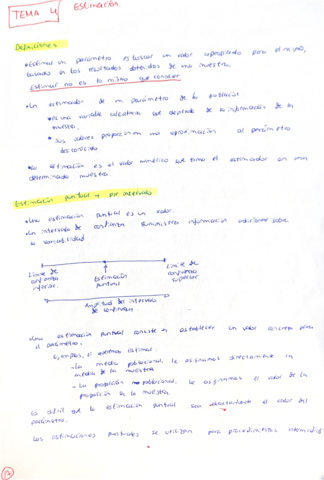 TEMA 4 Estimación.
Definiciones
• Estimar un parámetro es buscar un valor aproximado para el mismo,
basado en los resultados obtenidos de una muestra.
Estimar no es lo mismo que conocer.
• Un estimador de un parámetro de la población
• es una variable aleatoria que depende de la información de la
muestra.
• sus valores proporcionan una aproximación al parámetro
desconocido
• La estimación es el valor numérico que toma el estimador en una
determinada muestra.
Estimación puntual y por intervalos
• Una estimación puntual es un valor.
• Un intervalo de confianza suministra información adicional sobre
la variabilidad
Límite de confianza inferior.
Estimación puntual
Límite de confianza superior
Amplitud del intervalo
de confianza.
Una estimación puntual consiste en establecer un valor concreto para
el parámetro.
Ejemplos, si queremos estimar:
- La media poblacional, le asignamos directamente la
media de la muestra
- La proporción poblacional, le asignamos el valor de la
proporción en la muestra
Es difícil que la estimación puntual sea exactamente el valor del
parámetro.
Las estimaciones puntuales se utilizan para procedimientos intermedios